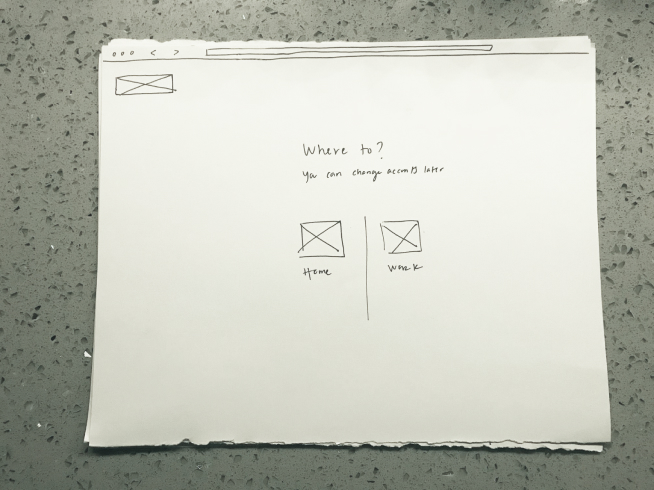 Where to?
You can change accounts later
Home
Work